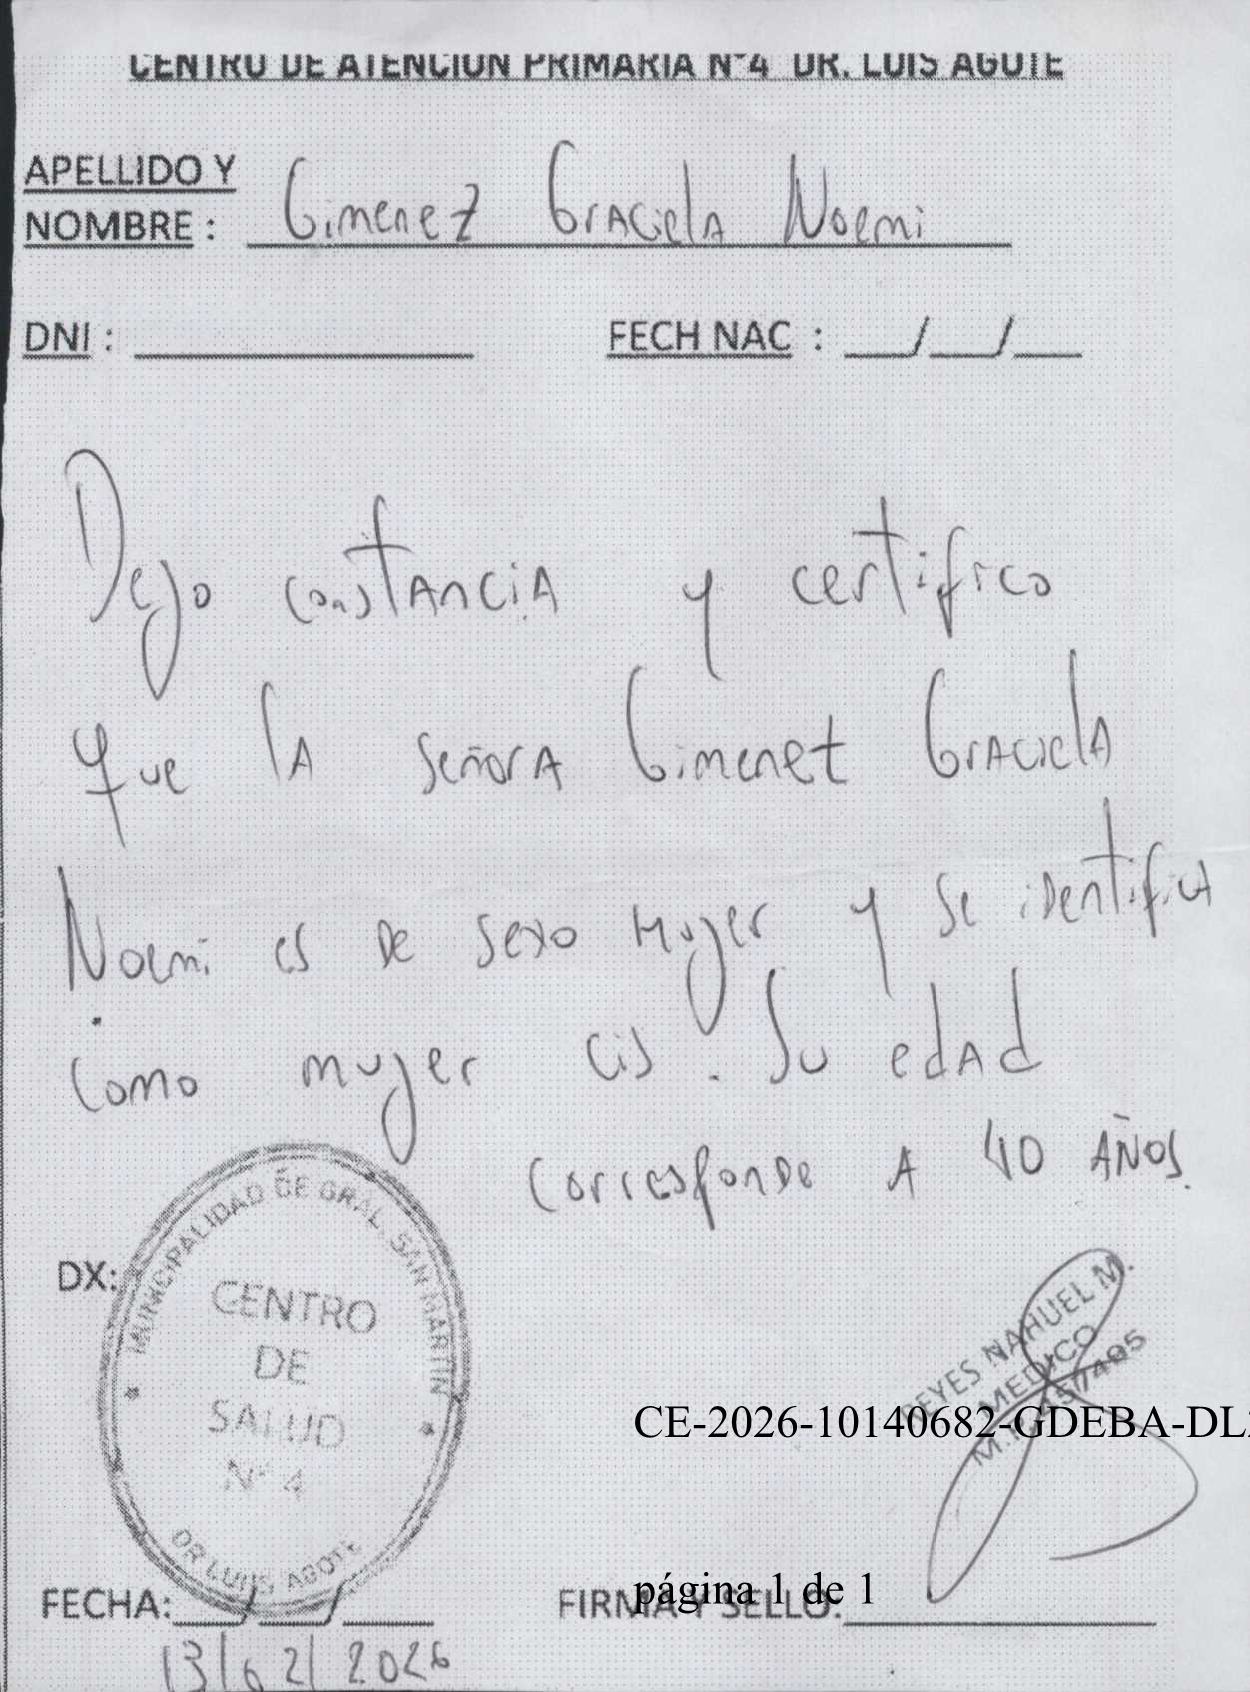 CENTRO DE ATENCION PRIMARIA N°4 DR. LUIS AGOTE
APELLIDO Y
NOMBRE : Gimenez Graciela Noemi
DNI : FECH NAC : __/__/__
Dejo constancia y certifico
que la señora Gimenet Graciela
Noemi es de sexo mujer y se identifica
como mujer cis. Su edad
corresponde a 40 AÑOS.
DX:
MUNICIPALIDAD DE GRAL. SAN MARTIN
CENTRO
DE
SALUD
N° 4
DR LUIS AGOTE
REYES NAHUEL M.
MEDICO
CE-2026-10140682-GDEBA-DL
FECHA: __/__/__ FIRMA Y SELLO:
página 1 de 1
13/02/2026